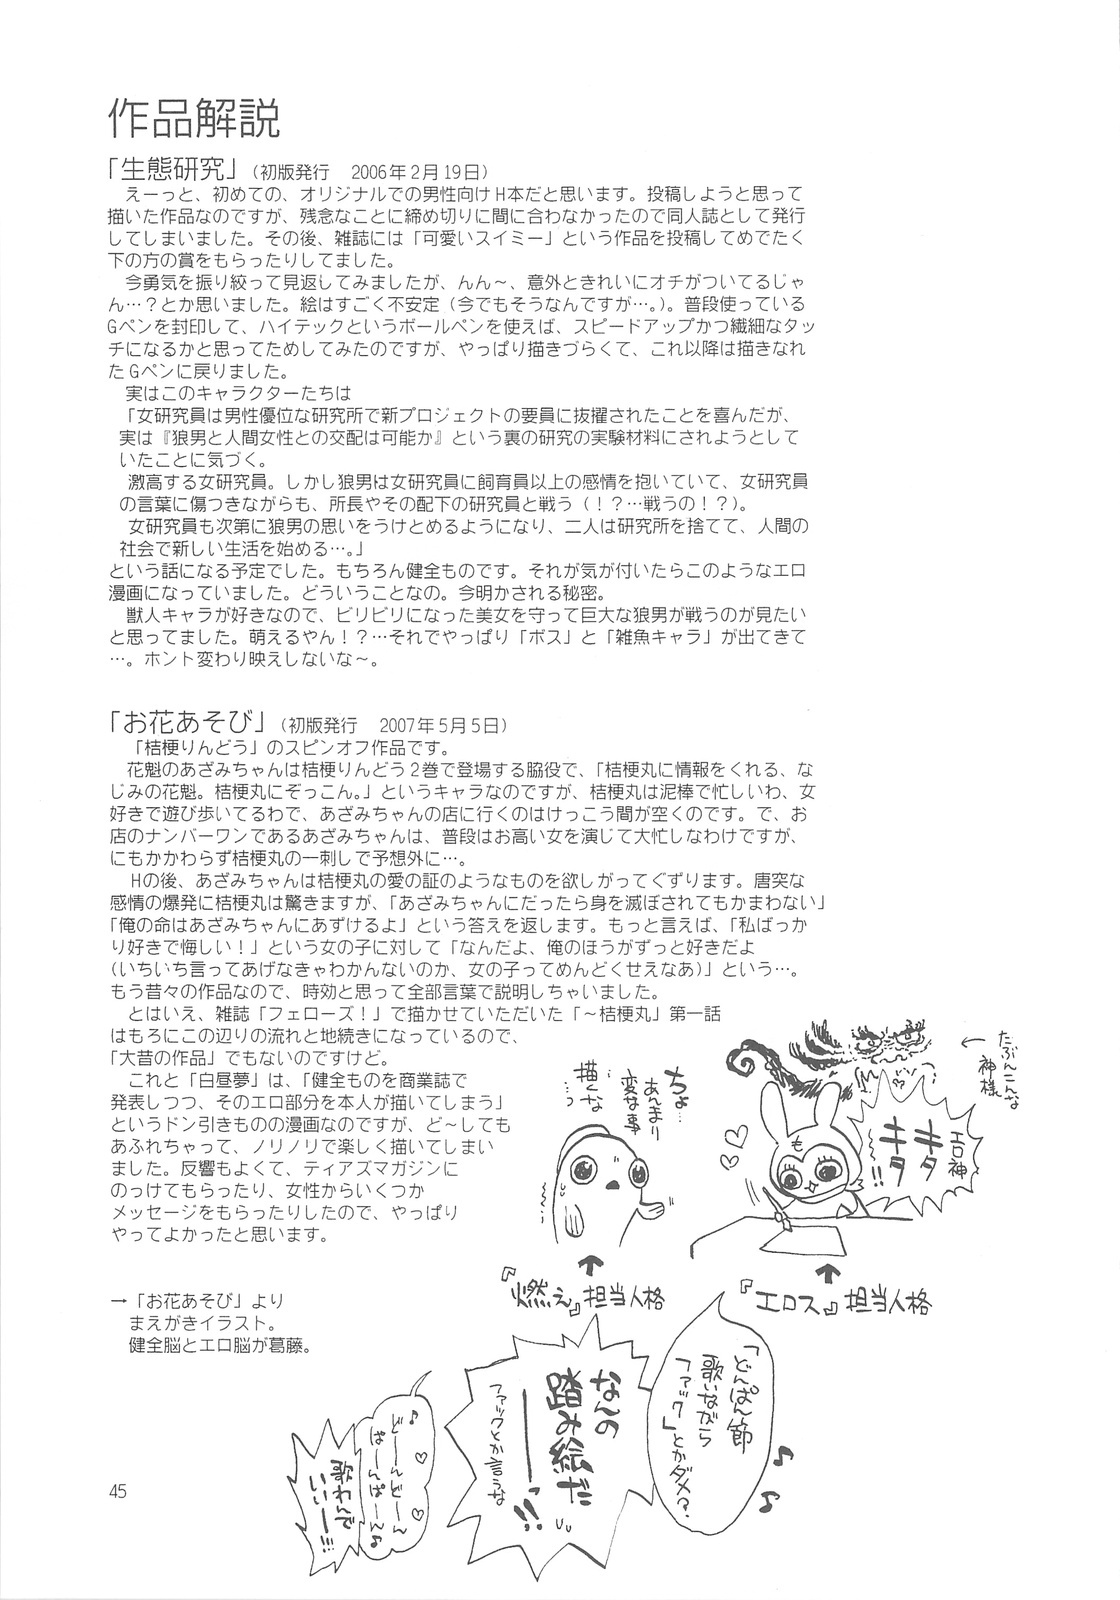 作品解説
「生態研究」（初版発行　2006年2月19日）
えーっと、初めての、オリジナルでの男性向けH本だと思います。投稿しようと思って
描いた作品なのですが、残念なことに締め切りに間に合わなかったので同人誌として発行
してしまいました。その後、雑誌には「可愛いスイミー」という作品を投稿してめでたく
下の方の賞をもらったりしてました。
今勇気を振り絞って見返してみましたが、んん～、意外ときれいにオチがついてるじゃ
ん…？とか思いました。絵はすごく不安定（今でもそうなんですが…。）。普段使っている
Gペンを封印して、ハイテックというボールペンを使えば、スピードアップかつ繊細なタッ
チになるかと思ってためしてみたのですが、やっぱり描きづらくて、これ以降は描きなれ
たGペンに戻りました。
実はこのキャラクターたちは
「女研究員は男性優位な研究所で新プロジェクトの要員に抜擢されたことを喜んだが、
実は『狼男と人間女性との交配は可能か』という裏の研究の実験材料にされようとして
いたことに気づく。
激高する女研究員。しかし狼男は女研究員に飼育員以上の感情を抱いていて、女研究員
の言葉に傷つきながらも、所長やその配下の研究員と戦う（！？…戦うの！？）。
女研究員も次第に狼男の思いをうけとめるようになり、二人は研究所を捨てて、人間の
社会で新しい生活を始める…。」
という話になる予定でした。もちろん健全ものです。それが気が付いたらこのようなエロ
漫画になっていました。どういうことなの。今明かされる秘密。
獣人キャラが好きなので、ビリビリになった美女を守って巨大な狼男が戦うのが見たい
と思ってました。萌えるやん！？…それでやっぱり「ボス」と「雑魚キャラ」が出てきて
…。ホント変わり映えしないな～。
「お花あそび」（初版発行　2007年5月5日）
「桔梗りんどう」のスピンオフ作品です。
花魁のあざみちゃんは桔梗りんどう2巻で登場する脇役で、「桔梗丸に情報をくれる、な
じみの花魁。桔梗丸にぞっこん。」というキャラなのですが、桔梗丸は泥棒で忙しいわ、女
好きで遊び歩いてるわで、あざみちゃんの店に行くのはけっこう間が空くのです。で、お
店のナンバーワンであるあざみちゃんは、普段はお高い女を演じて大忙しなわけですが、
にもかかわらず桔梗丸の一刺しで予想外に…。
Hの後、あざみちゃんは桔梗丸の愛の証のようなものを欲しがってぐずります。唐突な
感情の爆発に桔梗丸は驚きますが、「あざみちゃんにだったら身を滅ぼされてもかまわない」
「俺の命はあざみちゃんにあずけるよ」という答えを返します。もっと言えば、「私ばっか
り好きで悔しい！」という女の子に対して「なんだよ、俺のほうがずっと好きだよ
（いちいち言ってあげなきゃわかんないのか、女の子ってめんどくせえなあ）」という…。
もう昔々の作品なので、時効と思って全部言葉で説明しちゃいました。
とはいえ、雑誌「フェローズ！」で描かせていただいた「～桔梗丸」第一話
はもろにこの辺りの流れと地続きになっているので、
「大昔の作品」でもないのですけど。
これと「白昼夢」は、「健全ものを商業誌で
発表しつつ、そのエロ部分を本人が描いてしまう」
というドン引きものの漫画なのですが、ど～しても
あふれちゃって、ノリノリで楽しく描いてしまい
ました。反響もよくて、ティアズマガジンに
のっけてもらったり、女性からいくつか
メッセージをもらったりしたので、やっぱり
やってよかったと思います。
→「お花あそび」より
まえがきイラスト。
健全脳とエロ脳が葛藤。
←たぶんこんな
神様
エロ神
キタ
キタ
…!!
も
ちょ…
あんまり
変な事
描くな
…っ
『燃え』担当人格
『エロス』担当人格
「どんぱん節
歌いながら
ファック」とかダメ？
なんの
踏み絵だ
ーーっ!!
ファックとか言うな
どーんどーん
ぱーんぱーん♪
歌わんで
いいーー!!!
45